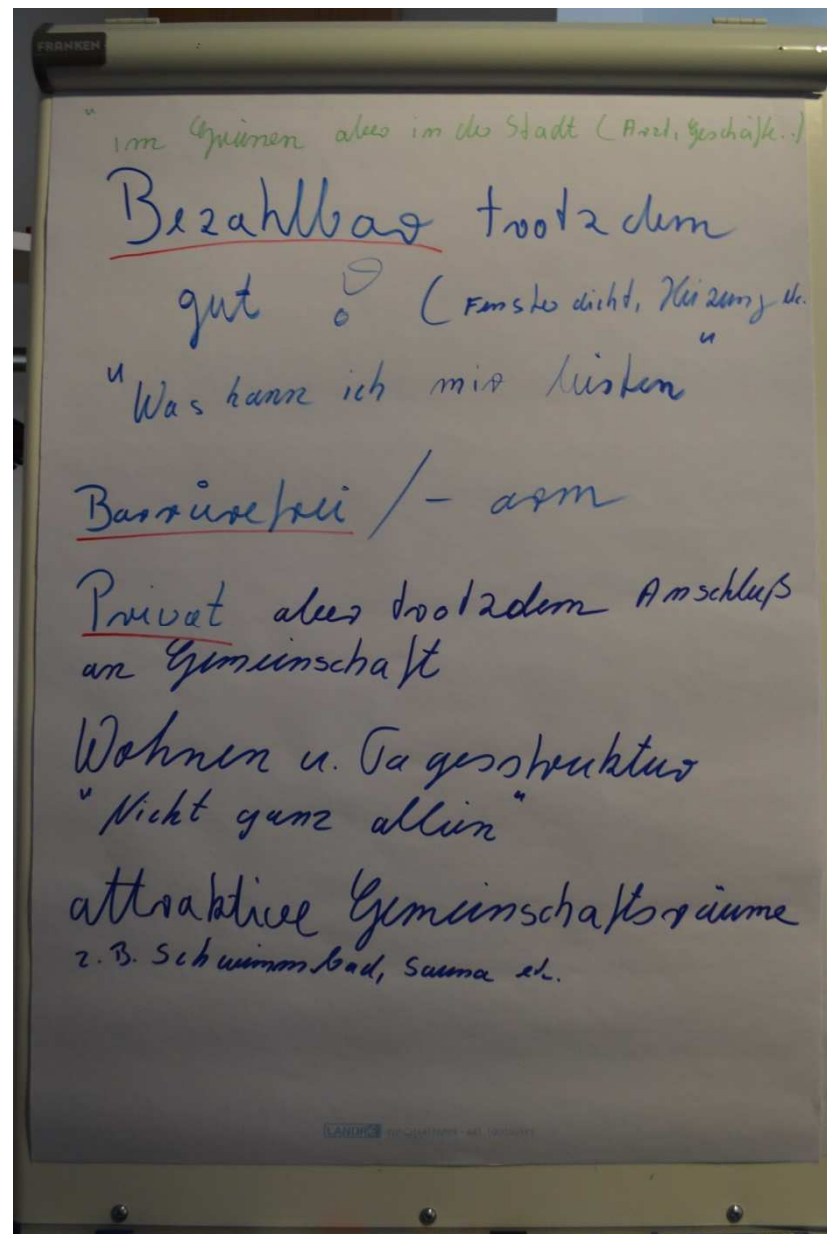 FRANKEN
" im Grünen aber in der Stadt (Arzt, Geschäfte..)
Bezahlbar trotzdem
gut ? (Fenster dicht, Heizung etc.
"Was kann ich mir leisten"
Barrierefrei / - arm
Privat aber trotzdem Anschluß
an Gemeinschaft
Wohnen u. Tagesstruktur
"Nicht ganz allein"
attraktive Gemeinschaftsräume
z. B. Schwimmbad, Sauna etc.
LANDRÉ